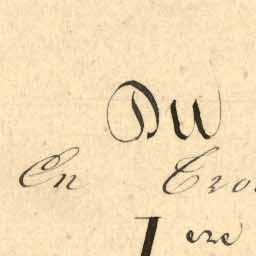 DU
En Cro
1ere